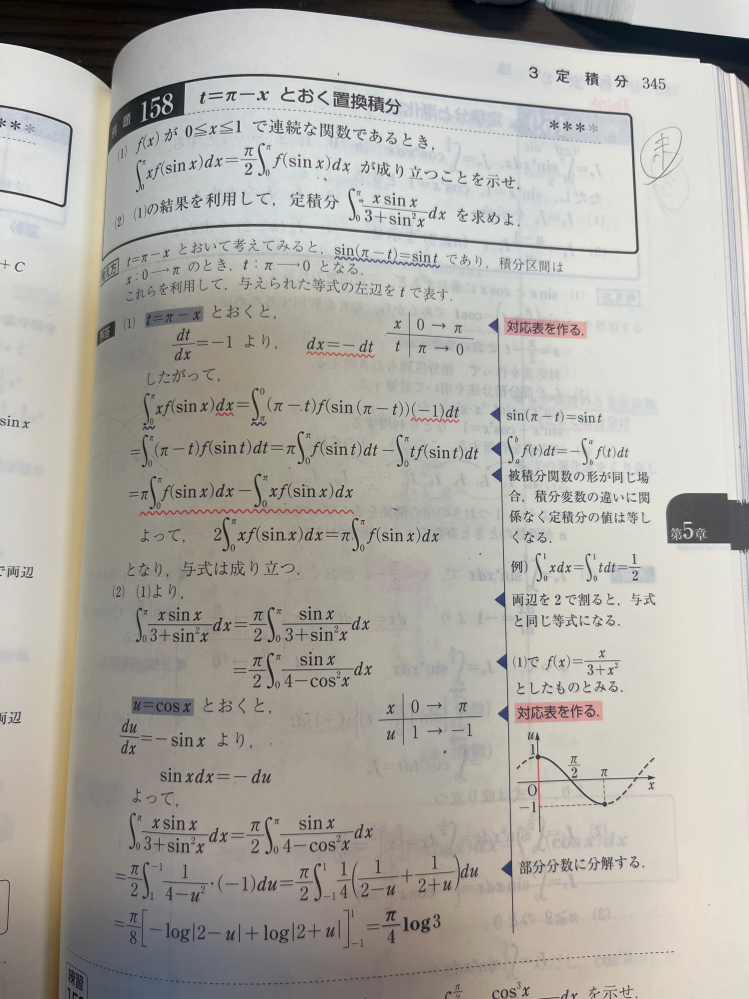 3 定積分 345
例題 158 t=π−x とおく置換積分 ****
(1) f(x) が 0≦x≦1 で連続な関数であるとき,
∫₀^π xf(sin x)dx=π/2∫₀^π f(sin x)dx が成り立つことを示せ.
(2) (1)の結果を利用して, 定積分 ∫₀^π x sin x/(3+sin²x) dx を求めよ.
考え方 t=π−x とおいて考えてみると, sin(π−t)=sin t であり, 積分区間は
x:0→π のとき, t:π→0 となる.
これらを利用して, 与えられた等式の左辺を t で表す.
解答 (1) t=π−x とおくと,
dt/dx=−1 より, dx=−dt
x | 0 → π
t | π → 0
対応表を作る.
したがって,
∫₀^π xf(sin x)dx=∫_π^0 (π−t)f(sin(π−t))(−1)dt
sin(π−t)=sin t
=∫₀^π (π−t)f(sin t)dt=π∫₀^π f(sin t)dt−∫₀^π tf(sin t)dt
∫_a^b f(t)dt=−∫_b^a f(t)dt
=π∫₀^π f(sin x)dx−∫₀^π xf(sin x)dx
被積分関数の形が同じ場
合, 積分変数の違いに関
係なく定積分の値は等し
くなる.
例) ∫₀^1 xdx=∫₀^1 tdt=1/2
よって, 2∫₀^π xf(sin x)dx=π∫₀^π f(sin x)dx
となり, 与式は成り立つ.
両辺を2で割ると, 与式
と同じ等式になる.
第5章
(2) (1)より,
∫₀^π x sin x/(3+sin²x) dx=π/2∫₀^π sin x/(3+sin²x) dx
=π/2∫₀^π sin x/(4−cos²x) dx
(1)で f(x)=x/(3+x²)
としたものとみる.
u=cos x とおくと,
du/dx=−sin x より,
x | 0 → π
u | 1 → −1
対応表を作る.
sin xdx=−du
u
1
π/2
π
O
x
−1
よって,
∫₀^π x sin x/(3+sin²x) dx=π/2∫₀^π sin x/(4−cos²x) dx
=π/2∫_1^−1 1/(4−u²)·(−1)du=π/2∫_−1^1 1/4(1/(2−u)+1/(2+u))du
部分分数に分解する.
=π/8[−log|2−u|+log|2+u|]_−1^1=π/4 log3
練習
を示せ.
+C
sin x
で両辺
両辺